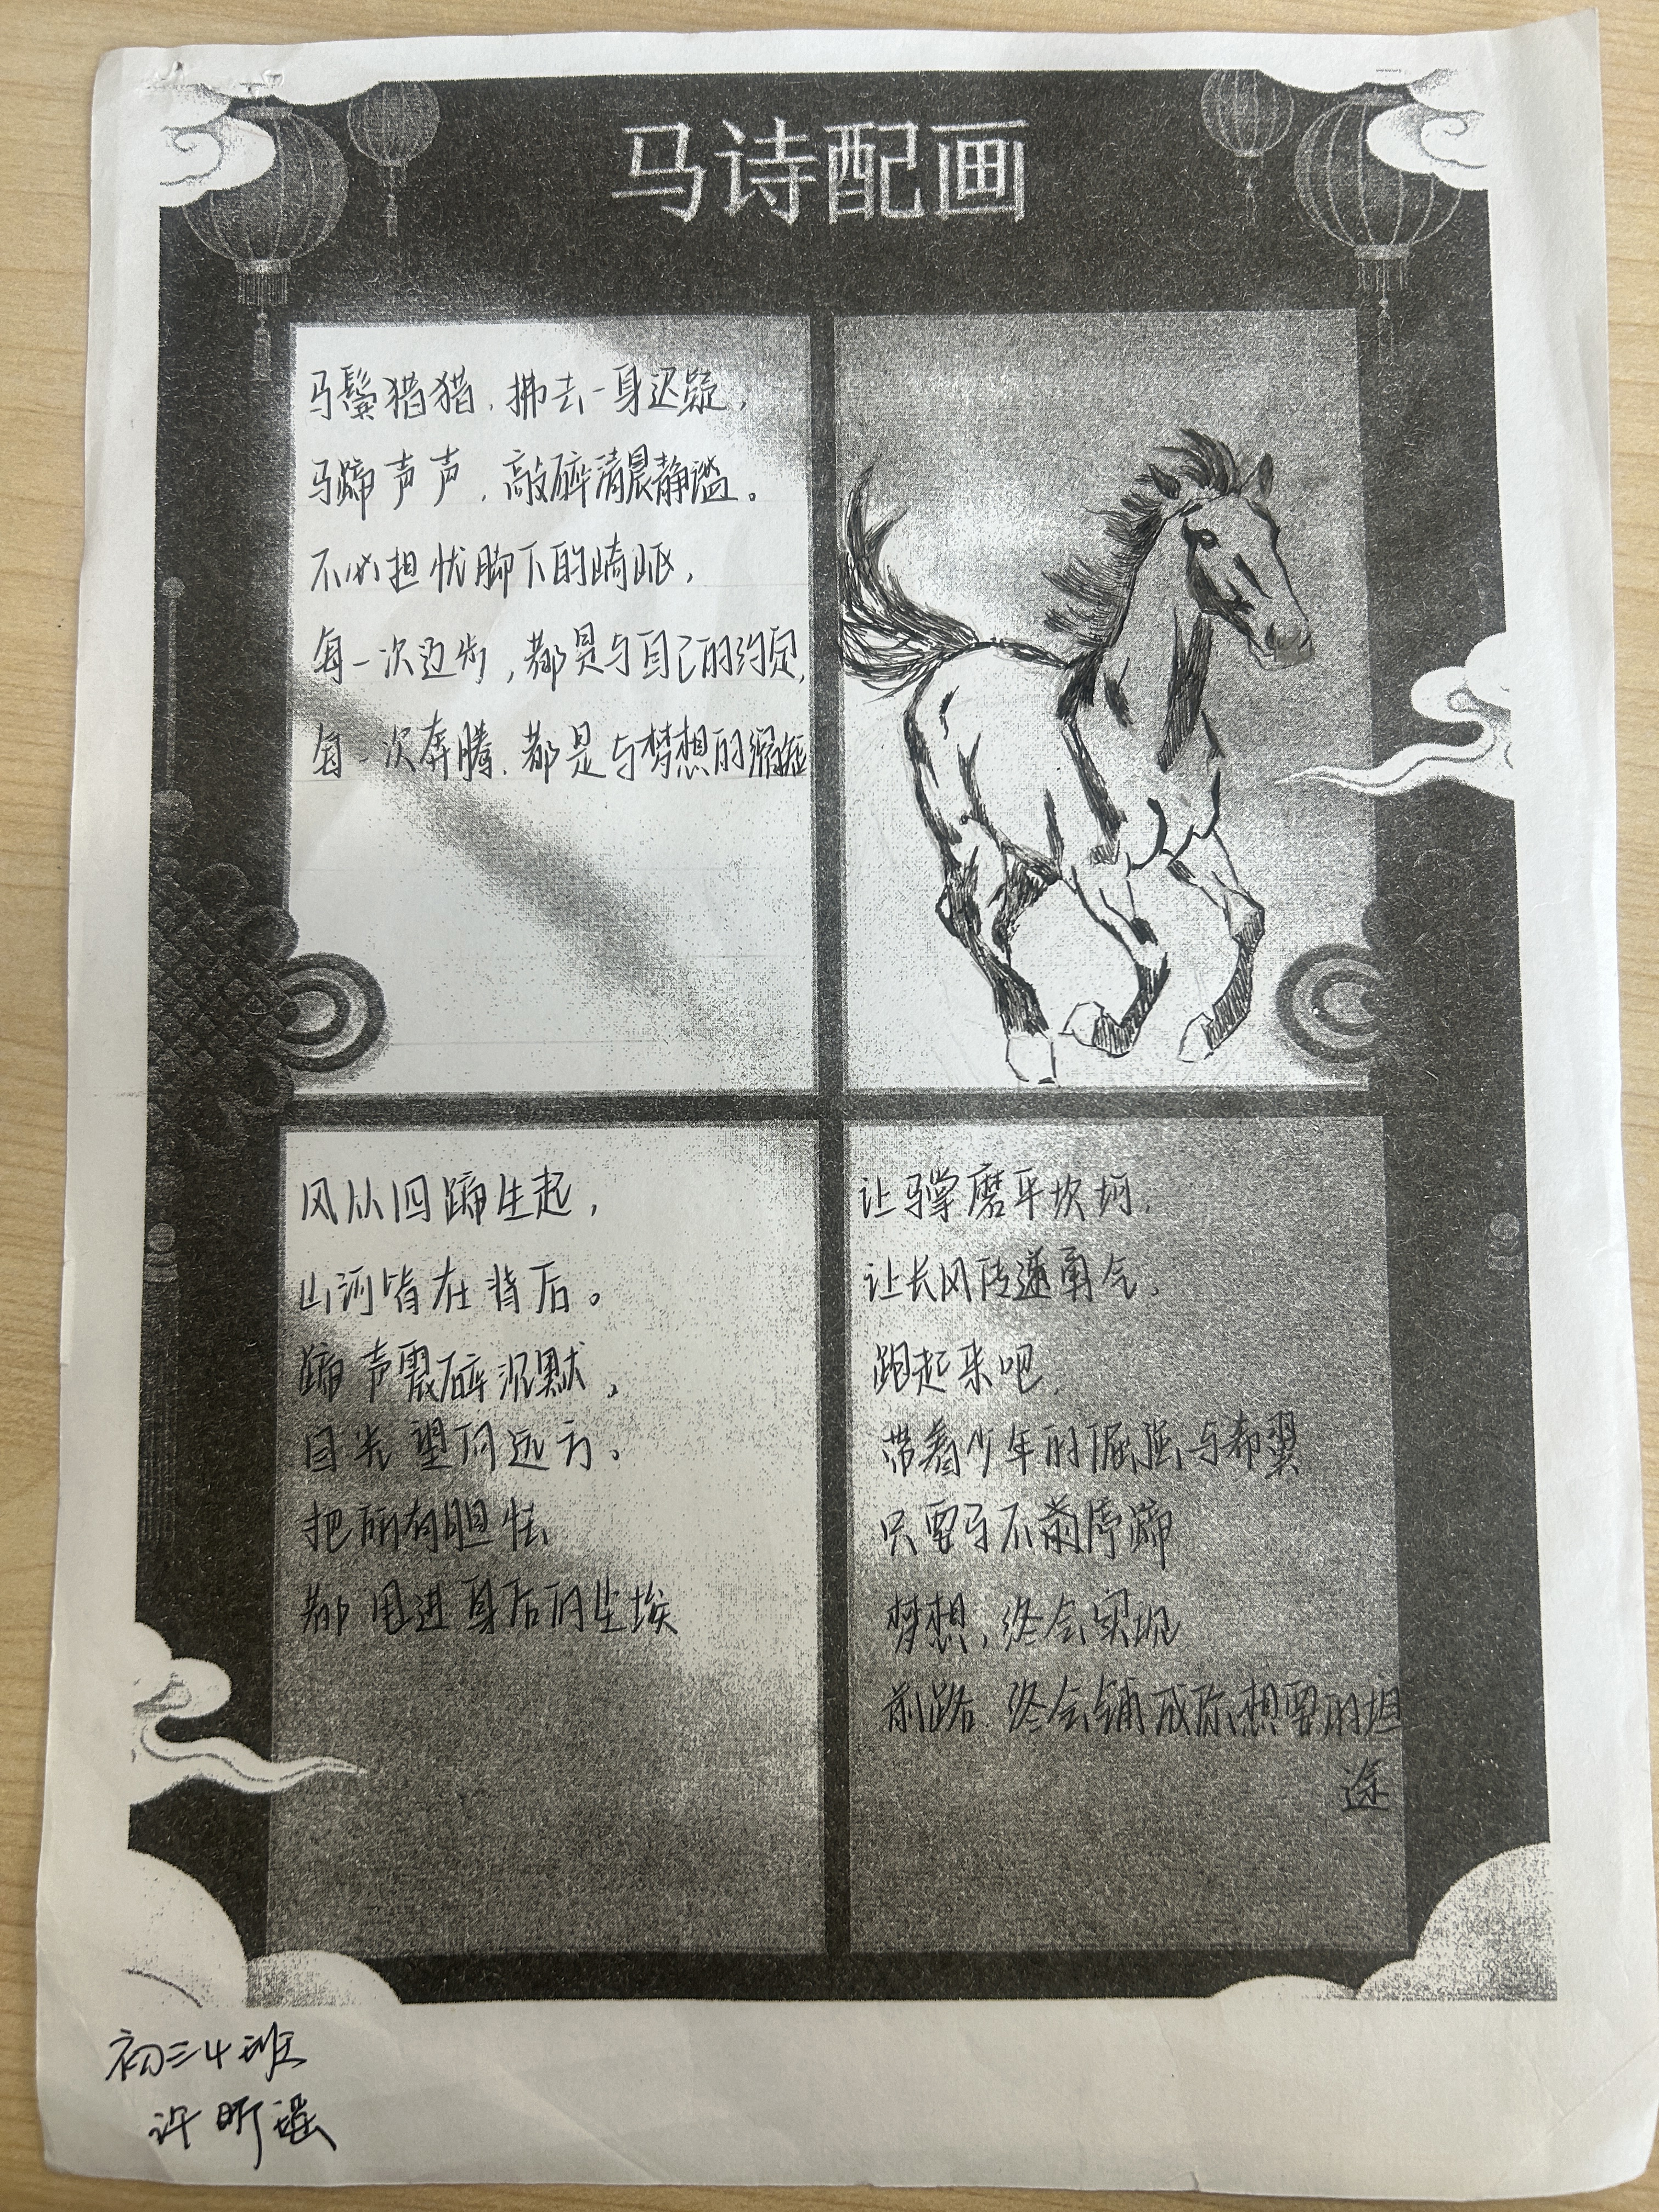 马诗配画
马鬓猎猎，拂去一身迟疑，
马蹄声声，敲碎清晨静谧。
不必担忧脚下的崎岖，
每一次迈步，都是与自己的约定，
每一次奔腾，都是与梦想的
风从四蹄生起，
山河皆在背后。
蹄声震碎沉默，
目光望向远方。
把所有胆怯
都甩进身后的尘埃
让马掌磨平坎坷，
让长风传递勇气，
跑起来吧，
带着少年的倔强与希翼
只要马不前停蹄
梦想，终会实现
前路，终会铺成你想要的坦
途
初三4班
许昕瑶